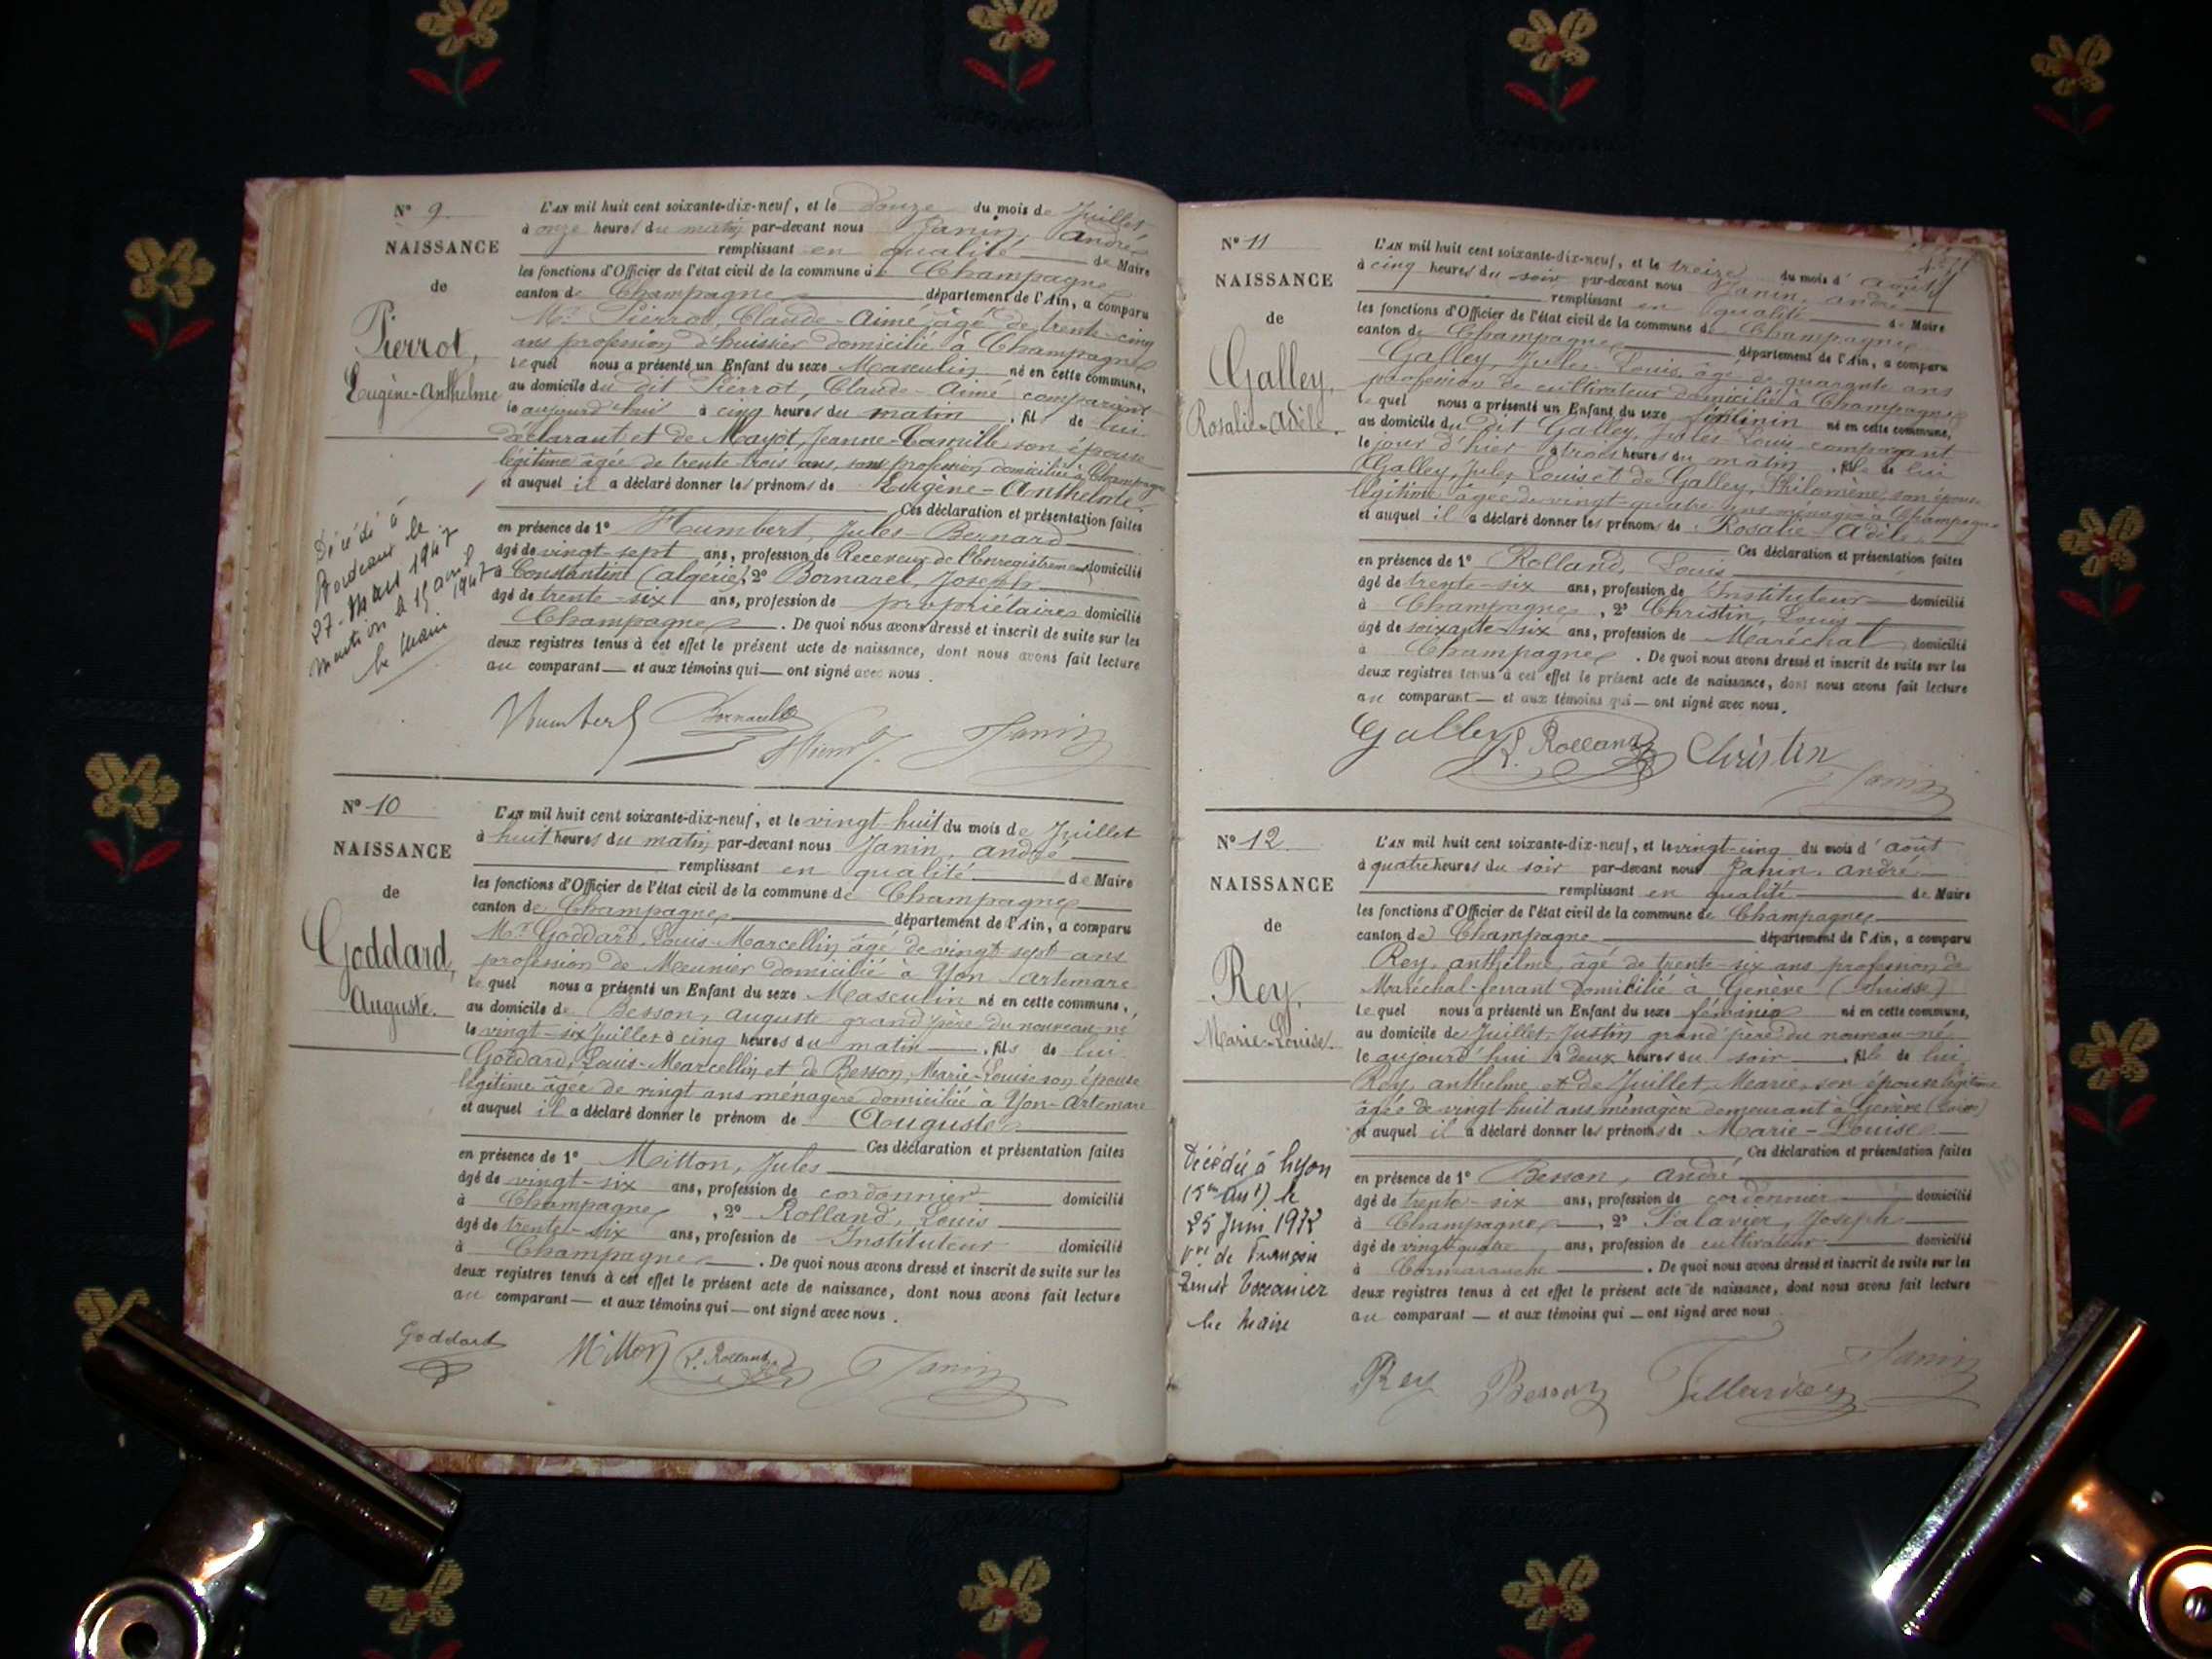 N° 9
NAISSANCE
de
Pierrot,
Eugène-Anthelme
L'AN mil huit cent soixante-dix-neuf, et le douze du mois de Juillet
à onze heures du matin par-devant nous Janin, André
remplissant en qualité de Maire
les fonctions d'Officier de l'état civil de la commune de Champagne
canton de Champagne département de l'Ain, a comparu
Mr Pierrot, Claude-Aimé, âgé de trente-cinq
ans profession d'huissier domicilié à Champagne
lequel nous a présenté un Enfant du sexe Masculin né en cette commune,
au domicile du dit Pierrot, Claude-Aimé comparant
le aujourd'hui à cinq heures du matin, fils de lui
déclarant et de Mayot, Jeanne-Camille son épouse
légitime âgée de trente-trois ans, sans profession domiciliée à Champagne
et auquel il a déclaré donner les prénoms de Eugène-Anthelme
Ces déclaration et présentation faites
en présence de 1° Humbert, Jules-Bernard
âgé de vingt-sept ans, profession de Receveur de l'Enregistrement domicilié
à Constantine (Algérie), 2° Bornarel, Joseph
âgé de trente-six ans, profession de propriétaire domicilié
Champagne. De quoi nous avons dressé et inscrit de suite sur les
deux registres tenus à cet effet le présent acte de naissance, dont nous avons fait lecture
au comparant — et aux témoins qui — ont signé avec nous.
Décédé à
Bordeaux le
27 Mars 1947
Mention le 15 avril 1947
Le Maire
Humbert Janin
N° 10
NAISSANCE
de
Goddard,
Auguste.
L'AN mil huit cent soixante-dix-neuf, et le vingt-huit du mois de Juillet
à huit heures du matin par-devant nous Janin, André
remplissant en qualité de Maire
les fonctions d'Officier de l'état civil de la commune de Champagne
canton de Champagne département de l'Ain, a comparu
Mr Goddard, Louis-Marcellin âgé de vingt-sept ans
profession de Meunier domicilié à Yon Artemare
lequel nous a présenté un Enfant du sexe Masculin né en cette commune,
au domicile de Besson, Auguste grand'père du nouveau né
le vingt-six Juillet à cinq heures du matin, fils de lui
Goddard, Louis-Marcellin et de Besson, Marie-Louise son épouse
légitime âgée de vingt ans ménagère domiciliée à Yon-Artemare
et auquel il a déclaré donner le prénom de Auguste
Ces déclaration et présentation faites
en présence de 1° Mitton, Jules
âgé de vingt-six ans, profession de cordonnier domicilié
à Champagne, 2° Rolland, Louis
âgé de trente-six ans, profession de Instituteur domicilié
à Champagne. De quoi nous avons dressé et inscrit de suite sur les
deux registres tenus à cet effet le présent acte de naissance, dont nous avons fait lecture
au comparant — et aux témoins qui — ont signé avec nous.
Goddard Mitton L. Rolland Janin
N° 11
NAISSANCE
de
Galley,
Rosalie-Adèle.
L'AN mil huit cent soixante-dix-neuf, et le treize du mois d'août
à cinq heures du soir par-devant nous Janin, André
remplissant en qualité de Maire
les fonctions d'Officier de l'état civil de la commune de Champagne
canton de Champagne département de l'Ain, a comparu
Galley, Jules-Louis, âgé de quarante ans
profession de cultivateur domicilié à Champagne
lequel nous a présenté un Enfant du sexe féminin né en cette commune,
au domicile du dit Galley, Jules-Louis comparant
le jour d'hier à trois heures du matin, fille de lui
Galley, Jules Louis et de Galley, Philomène, son épouse
légitime âgée de vingt-quatre ans ménagère à Champagne
et auquel il a déclaré donner les prénoms de Rosalie Adèle
Ces déclaration et présentation faites
en présence de 1° Rolland, Louis
âgé de trente-six ans, profession de Instituteur domicilié
à Champagne, 2° Christin, Louis
âgé de soixante-six ans, profession de Maréchal domicilié
à Champagne. De quoi nous avons dressé et inscrit de suite sur les
deux registres tenus à cet effet le présent acte de naissance, dont nous avons fait lecture
au comparant — et aux témoins qui — ont signé avec nous.
Galley L. Rolland Christin Janin
N° 12
NAISSANCE
de
Rey,
Marie-Louise.
L'AN mil huit cent soixante-dix-neuf, et le vingt-cinq du mois d'août
à quatre heures du soir par-devant nous Janin, André
remplissant en qualité de Maire
les fonctions d'Officier de l'état civil de la commune de Champagne
canton de Champagne département de l'Ain, a comparu
Rey, Anthelme, âgé de trente-six ans profession de
Maréchal-ferrant domicilié à Genève (Suisse)
lequel nous a présenté un Enfant du sexe féminin né en cette commune,
au domicile de Juillet, Justin grand'père du nouveau-né
le aujourd'hui à deux heures du soir, fille de lui
Rey, Anthelme et de Juillet, Marie, son épouse légitime
âgée de vingt-huit ans ménagère demeurant à Genève (Suisse)
et auquel il a déclaré donner les prénoms de Marie-Louise
Ces déclaration et présentation faites
en présence de 1° Besson, André
âgé de trente-six ans, profession de cordonnier domicilié
à Champagne, 2° Falavier, Joseph
âgé de vingt-quatre ans, profession de cultivateur domicilié
à Cormaranche. De quoi nous avons dressé et inscrit de suite sur les
deux registres tenus à cet effet le présent acte de naissance, dont nous avons fait lecture
au comparant — et aux témoins qui — ont signé avec nous
Décédée à Lyon
(5me Arrt) le
25 Juin 1972
vve de François
Le Maire
Rey Besson Janin